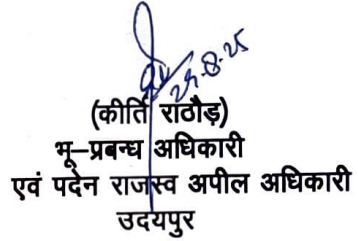 29-8-25
(कीर्ति राठौड़)
भू–प्रबन्ध अधिकारी
एवं पदेन राजस्व अपील अधिकारी
उदयपुर